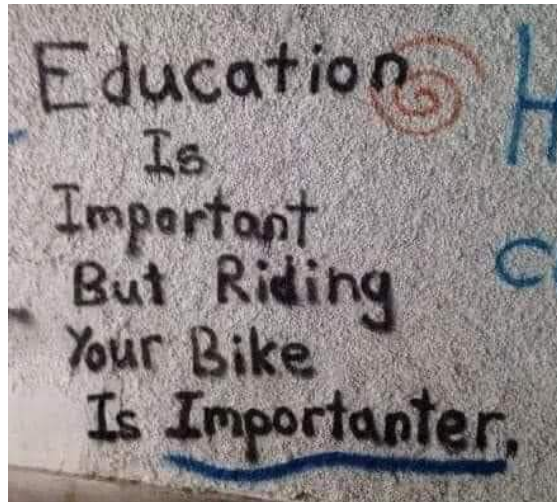 Education
Is
Important
But Riding
Your Bike
Is Importanter,
H
C